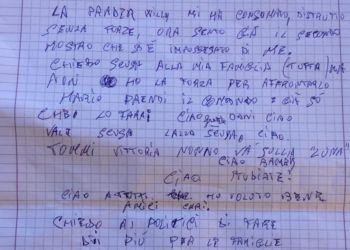 LA PANDEMIA MI HA CONSUMATO, DISTRUTTO
SENZA FORZE, ORA SENTO GIÀ IL SECONDO
MOSTRO CHE SI È IMPOSSESSATO DI ME.
CHIEDO SCUSA ALLA MIA FAMIGLIA (TUTTA) MA
NON HO LA FORZA PER AFFRONTARLO
MARIO PRENDI IL COMANDO E GIÀ SO
CHE LO FARAI CIAO DANI CIAO
VALE SCUSA SCUSA, CIAO.
TOMMI VITTORIA NONNO VÀ SULLA "LUNA"
CIAO
CIAO STUDIATE!
CIAO A TUTTI HO VOLUTO BENE
AMICI CARI.
CHIEDO AI POLITICI DI FARE
DI PIÙ PER LE FAMIGLIE